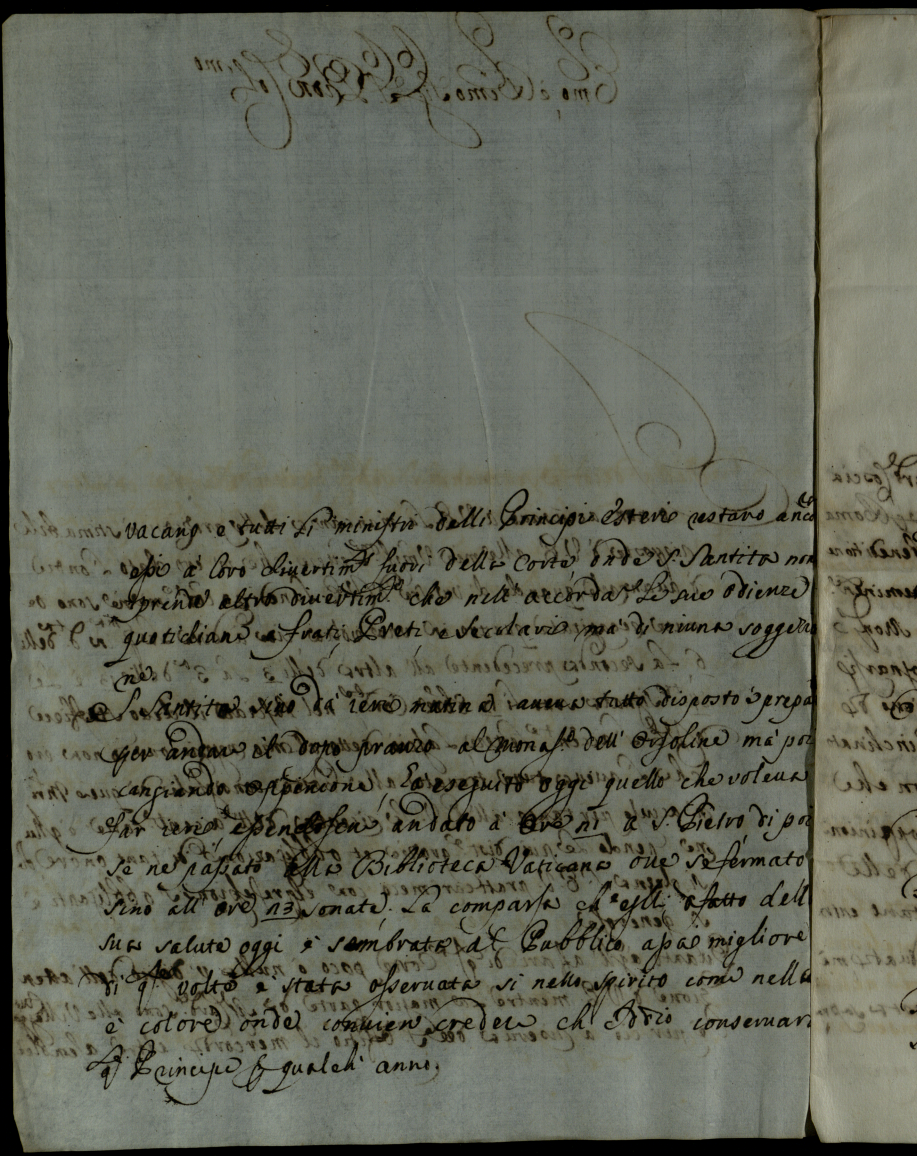 vacanze e tutti li ministri delli Principi Esteri restano anco
essi à loro divertim.ti fuori della Corte onde S. Santità non
prende altro divertim.to che nell' accordar le sue odienze
quotidiane a frati, Preti e Secolari, mà di niuna soggezio
ne
S. Santità sino da ieri mattina aveva tutto disposto è prepa
per andare il dopo pranzo al monast.o dell' Orsoline mà poi
cangiando oppenione, Ha eseguito oggi quello che voleva
far ieri, essendosene andato à Ore 21 à S. Pietro di poi
se nè passato alla Biblioteca Vaticana ove se fermato
sino all' ore 23 sonate. La comparsa ch' egli à fatto dell
sua salute oggi è sembrata al Pubblico assai migliore
di q. volte è stata osservata si nello spirito come nella
è colore onde convien creder ch' Iddio conservar
q. Principe p qualch' anno.